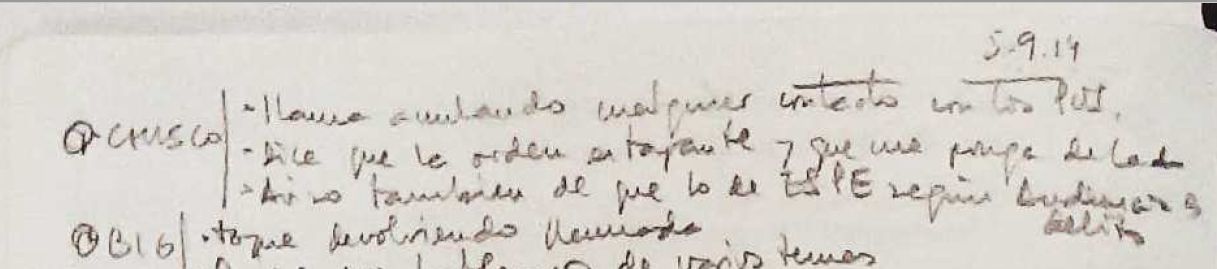 5-9-14
CHUSCO - Llama anulando cualquier contacto con los PUJ.
- Dice que la orden es tajante y que me ponga de lado
- Aviso también de que lo de ESPE según Audiencia es delito
BIG - toque devolviendo llamada
de varios temas